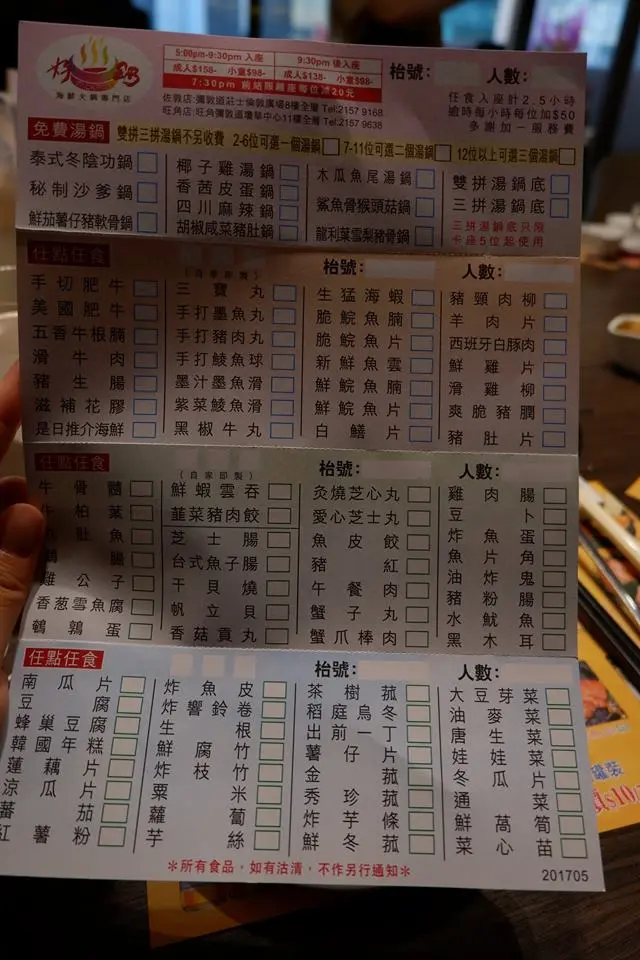 海鮮火鍋專門店
5:00pm-9:30pm 入座 9:30pm 後入座
成人$158- 小童$98- 成人$138- 小童$98-
7:30pm 前結賬離座每位減20元
佐敦店:彌敦道莊士倫敦廣場8樓全層 Tel:2157 9168
旺角店:彌敦道瓊華中心11樓全層 Tel:2157 9638
枱號: 人數:
任食入座計2.5小時
逾時每小時每位加$50
多謝加一服務費
免費湯鍋 雙拼三拼湯鍋不另收費 2-6位可選一個湯鍋 7-11位可選二個湯鍋 12位以上可選三個湯鍋
泰式冬陰功鍋
秘制沙爹鍋
鮮茄薯仔豬軟骨鍋
椰子雞湯鍋
香茜皮蛋鍋
四川麻辣鍋
胡椒咸菜豬肚鍋
木瓜魚尾湯鍋
鯊魚骨猴頭菇鍋
龍利葉雪梨豬骨鍋
雙拼湯鍋底
三拼湯鍋底
三拼湯鍋底只限
卡座5位起使用
任點任食 枱號: 人數:
手切肥牛
美國肥牛
五香牛根腩
滑牛肉
豬生腸
滋補花膠
是日推介海鮮
(自家即製)
三寶丸
手打墨魚丸
手打豬肉丸
手打鯪魚球
墨汁墨魚滑
紫菜鯪魚滑
黑椒牛丸
生猛海蝦
脆鯇魚腩
脆鯇魚片
新鮮魚雲
鮮鯇魚腩
鮮鯇魚片
白鱔片
豬頸肉柳
羊肉片
西班牙白豚肉
鮮雞片
滑雞柳
爽脆豬膶
豬肚片
任點任食 枱號: 人數:
牛骨髓
牛柏葉
肚魚
腸
雞公子
香葱雪魚腐
鵪鶉蛋
(自家即製)
鮮蝦雲吞
韮菜豬肉餃
芝士腸
台式魚子腸
干貝燒
帆立貝
香菇貢丸
灸燒芝心丸
愛心芝士丸
魚皮餃
豬紅
午餐肉
蟹子丸
蟹爪棒肉
雞肉腸
豆卜
炸魚蛋
魚片角
油炸鬼
豬粉腸
水魷魚
黑木耳
任點任食 枱號: 人數:
南瓜片
豆腐
蜂巢豆腐
韓國年糕
蓮藕片
涼瓜片
蕃茄
紅薯粉
炸魚皮
炸響鈴卷
生根
鮮腐竹
炸枝竹
粟米
蘿蔔
芋絲
茶樹菰
稻庭烏冬
出前一丁
薯仔片
金菰
秀珍菰
炸芋條
鮮冬菰
大豆芽菜
油麥菜
唐生菜
娃娃菜
冬瓜片
通菜
鮮萵筍
菜心苗
*所有食品，如有沽清，不作另行通知*
201705